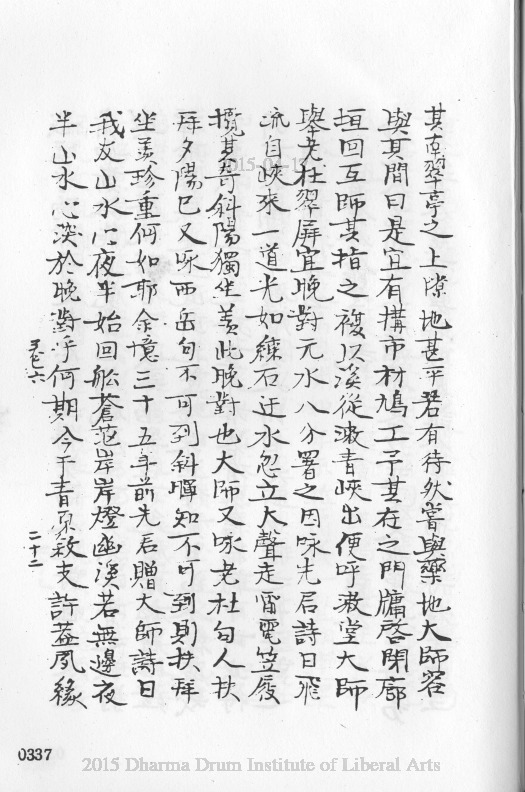 其南翠亭之上隙地甚平若有待然嘗與藥地大師容
與其間曰是宜有搆市材鳩工予其在之門牖啓閉廊
垣回互師其指之複以溪從漱青峽出便呼漱堂大師
舉老杜翠屏宜晚對元水八分署之因咏先居詩曰飛
流自峽來一道光如練石迂水忽立大聲走雷電笠屐
攬其奇斜陽獨坐羡此晚對也大師又咏老杜句人扶
拜夕陽巳又咏西岳句不可到斜暉知不可到則扶拜
坐羡珍重何如耶余憶三十五年前先居贈大師詩曰
我友山水心夜半始回舩蒼茫岸岸燈幽溪若無邊夜
半山水心淡於晚對乎何期今于青原敘支許葢夙緣
二十二
0337
2015-04-15
2015 Dharma Drum Institute of Liberal Arts